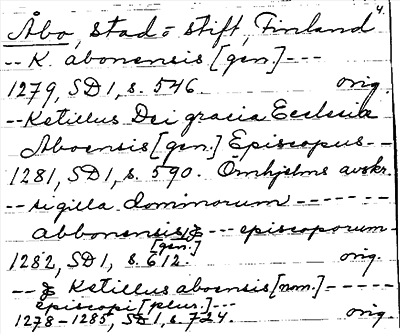 4.
Åbo, stad o stift, Finland
-- K. abonensis [gen] ---
1279, SD 1, s. 546. orig.
-- Ketillus Dei gracia Ecclesia
Aboensis [gen.] Episcopus --
1281, SD 1, s. 590. Örnhjelms avskr.
-- sigilla dominorum ------
abbonensis, --- episcoporum -
[gen.]
1282, SD 1, s. 612. orig.
-- Ketillus aboensis [nom.] -----
episcopi [plur.] ---
1278-1285, SD 1, s. 724. orig.